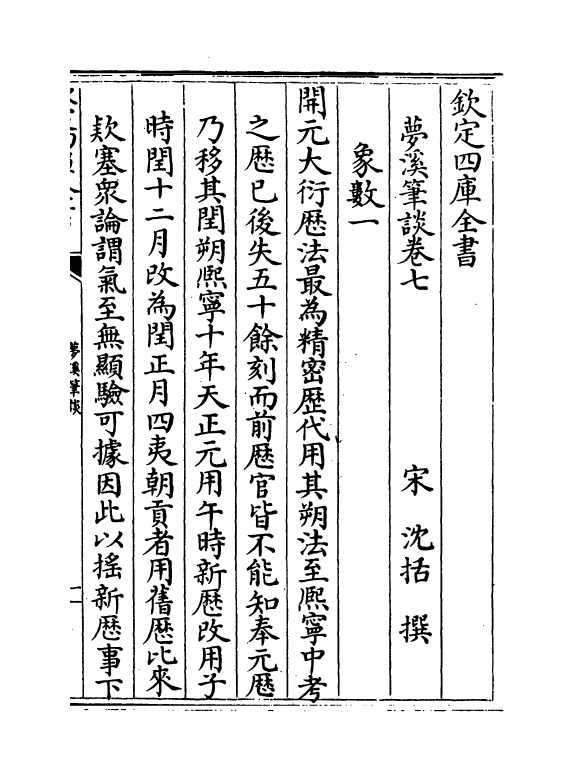 欽定四庫全書
夢溪筆談卷七　　　宋　沈括　撰
象數一
開元大衍歴法最為精密歴代用其朔法至熈寧中考
之歴已後失五十餘刻而前歴官皆不能知奉元歴
乃移其閏朔熈寧十年天正元用午時新歴改用子
時閏十二月改為閏正月四夷朝貢者用舊歴比來
欵塞衆論謂氣至無顯驗可據因此以揺新歴事下
夢溪筆談
一